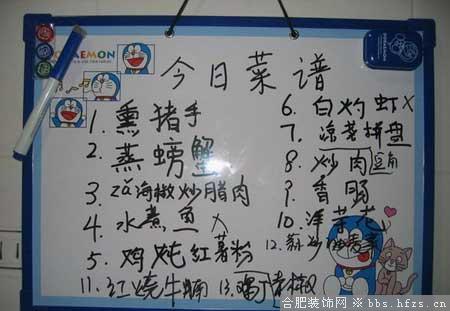 DORAEMON
今日菜谱
1. 熏猪手
2. 蒸螃蟹
3. zá海椒炒腊肉
4. 水煮鱼 X
5. 鸡炖红薯粉
6. 白灼虾 X
7. 凉菜拼盘
8. 炒肉
9. 香
10. 洋芋花
11. 红烧牛腩
12. 蒜炒
13.
合肥装饰网※bbs.hfzs.cn